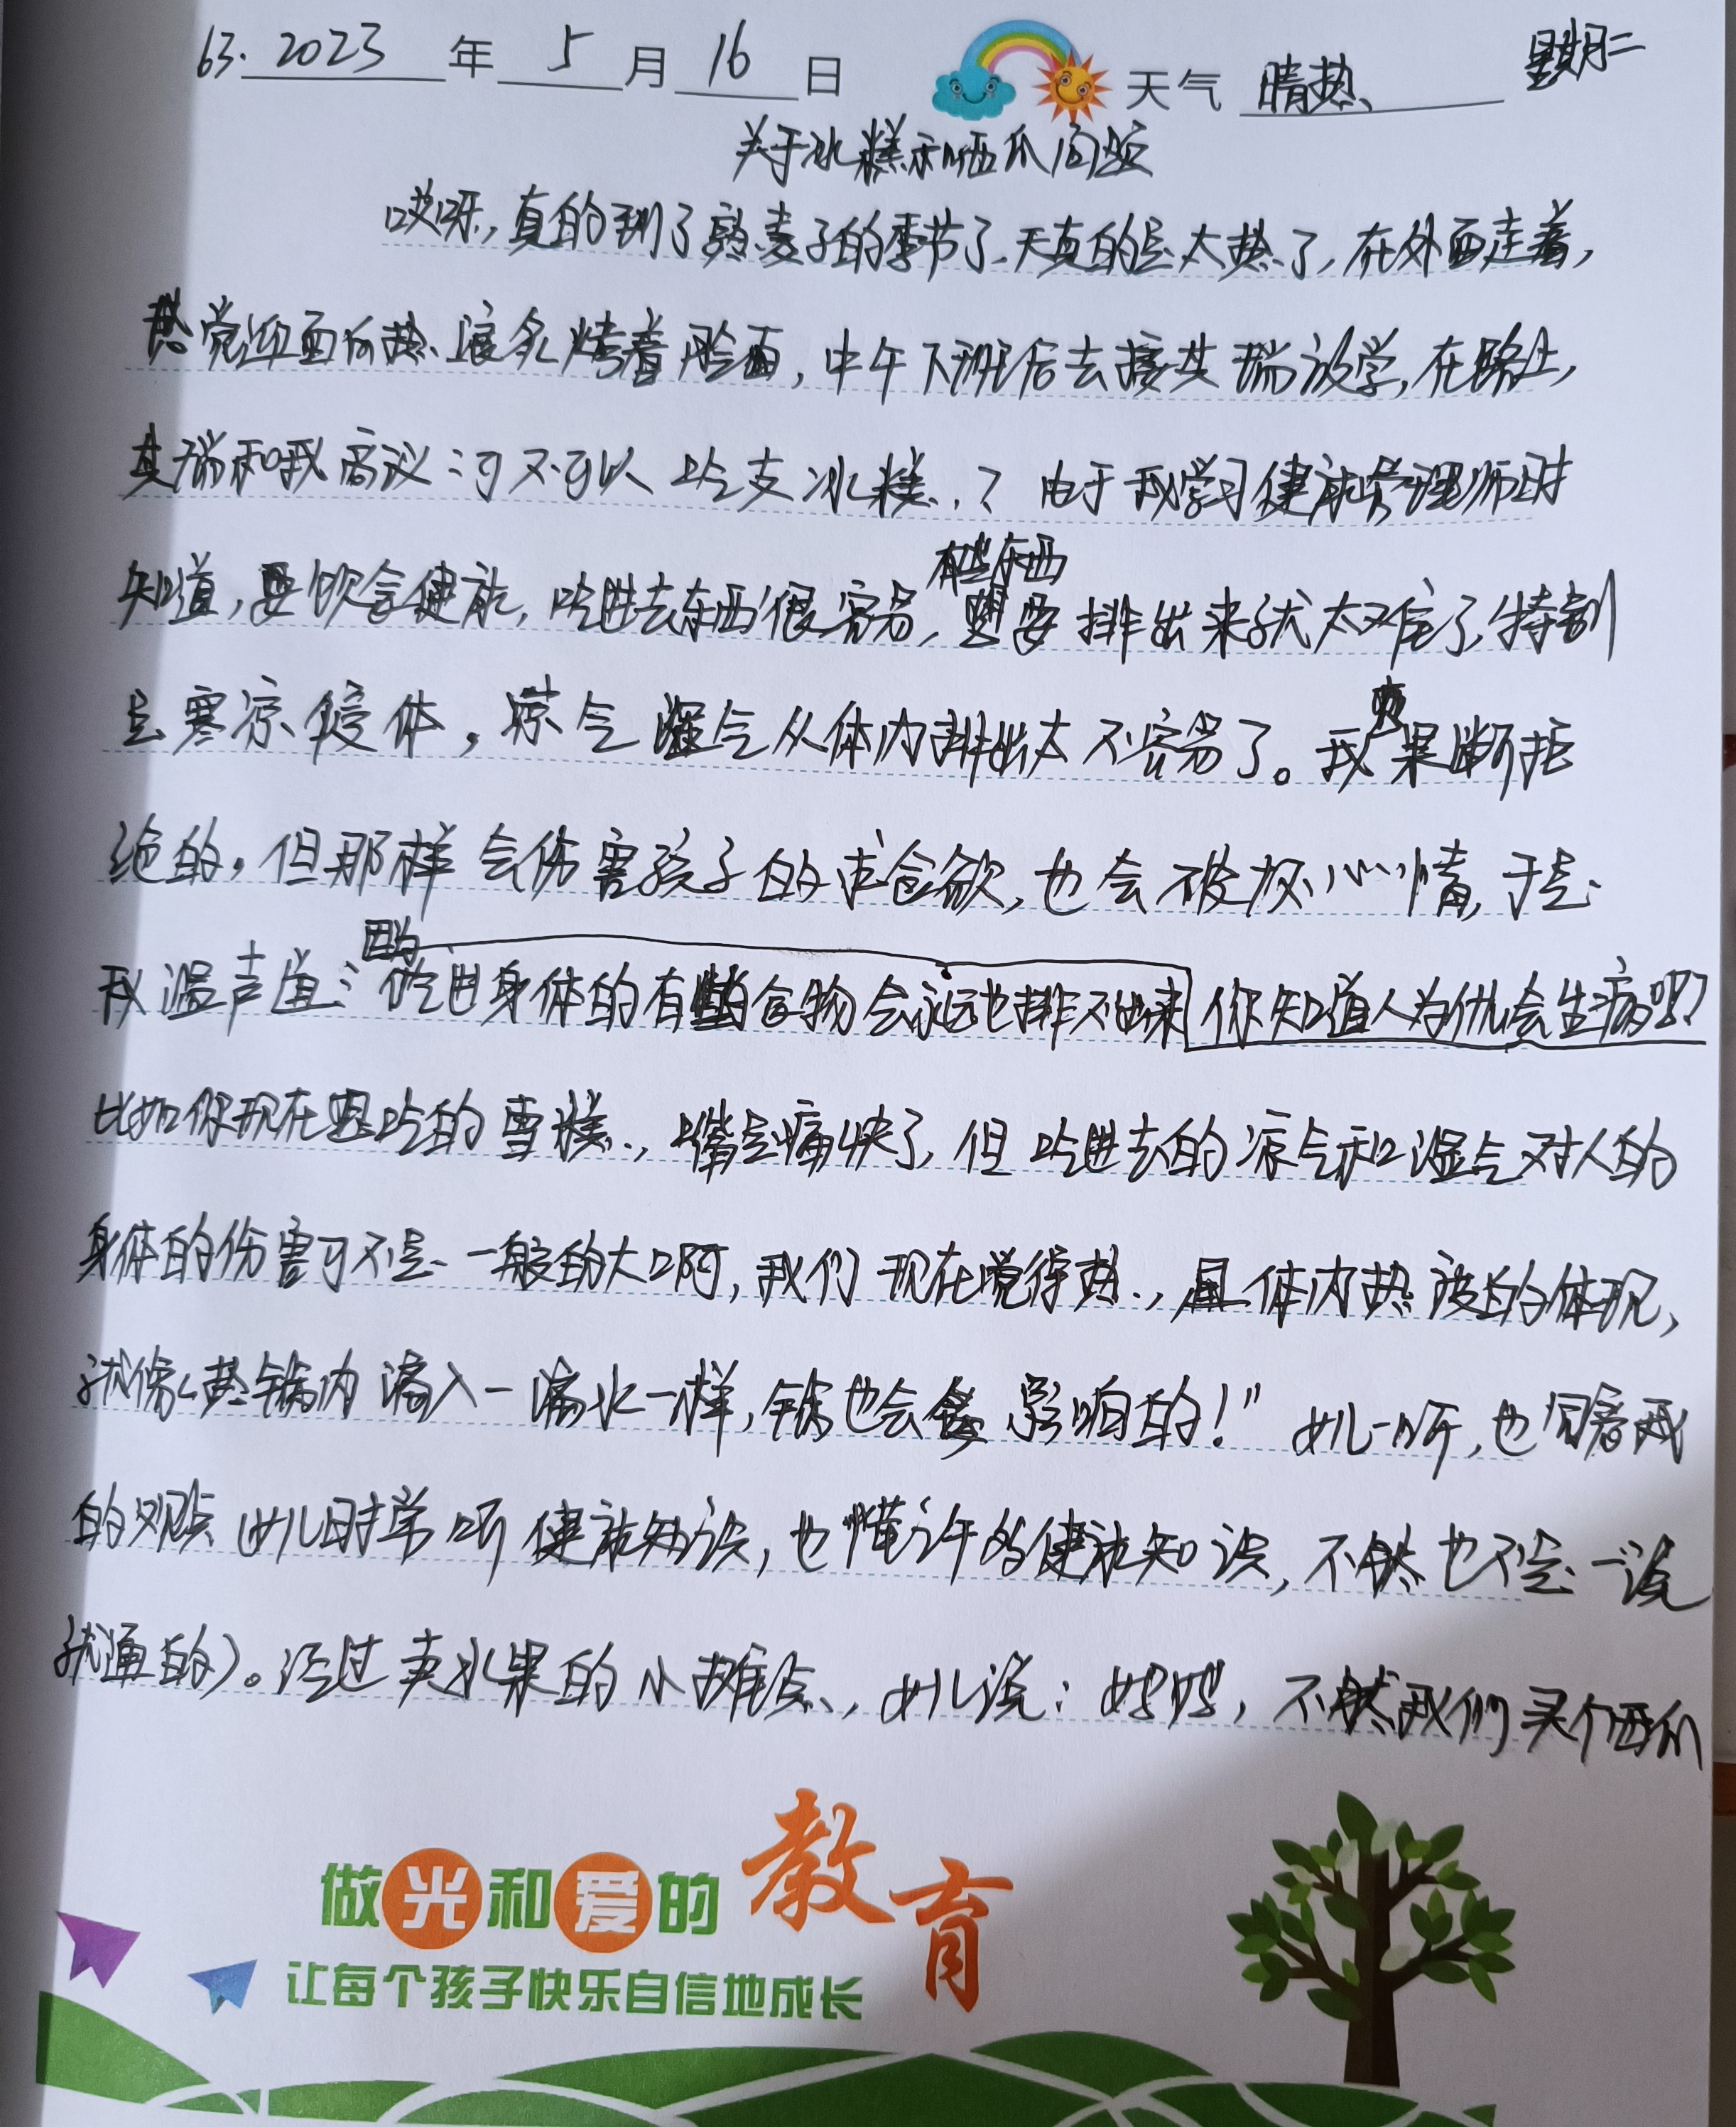 63. 2023 年 5 月 16 日 天气 晴热 星期二
关于冰糕和西瓜问题
哎呀,真的到了熟麦子的季节了,天真的是太热了,在外面走着,
感觉迎面的热浪炙烤着脸面,中午下班后去接其瑞放学,在路上,
其瑞和我商议:可不可以吃支冰糕,?由于我学习健康管理师时
知道,要饮食健康,吃进去东西很容易,有些东西想要排出来就太难了,特别
是寒凉侵体,凉气湿气从体内排出太不容易了。我要果断拒
绝的,但那样会伤害孩子的求食欲,也会破坏心情,于是
我温声道:因为吃进身体的有些食物会永远也排不出来你知道人为什么会生病吗?
比如你现在想吃的雪糕,嘴是痛快了,但吃进去的凉气和湿气对人的
身体的伤害可不是一般的大啊,我们现在觉得热,是体内热波的体现,
就像热锅内滴入一滴水一样,锅也会受影响的!”女儿一听,也同意我
的观点 女儿时常听健康知识,也懂许多健康知识,不然也不是一说
就通的)。经过卖水果的小摊点,女儿说:妈妈,不然我们买个西瓜
做光和爱的教育
让每个孩子快乐自信地成长